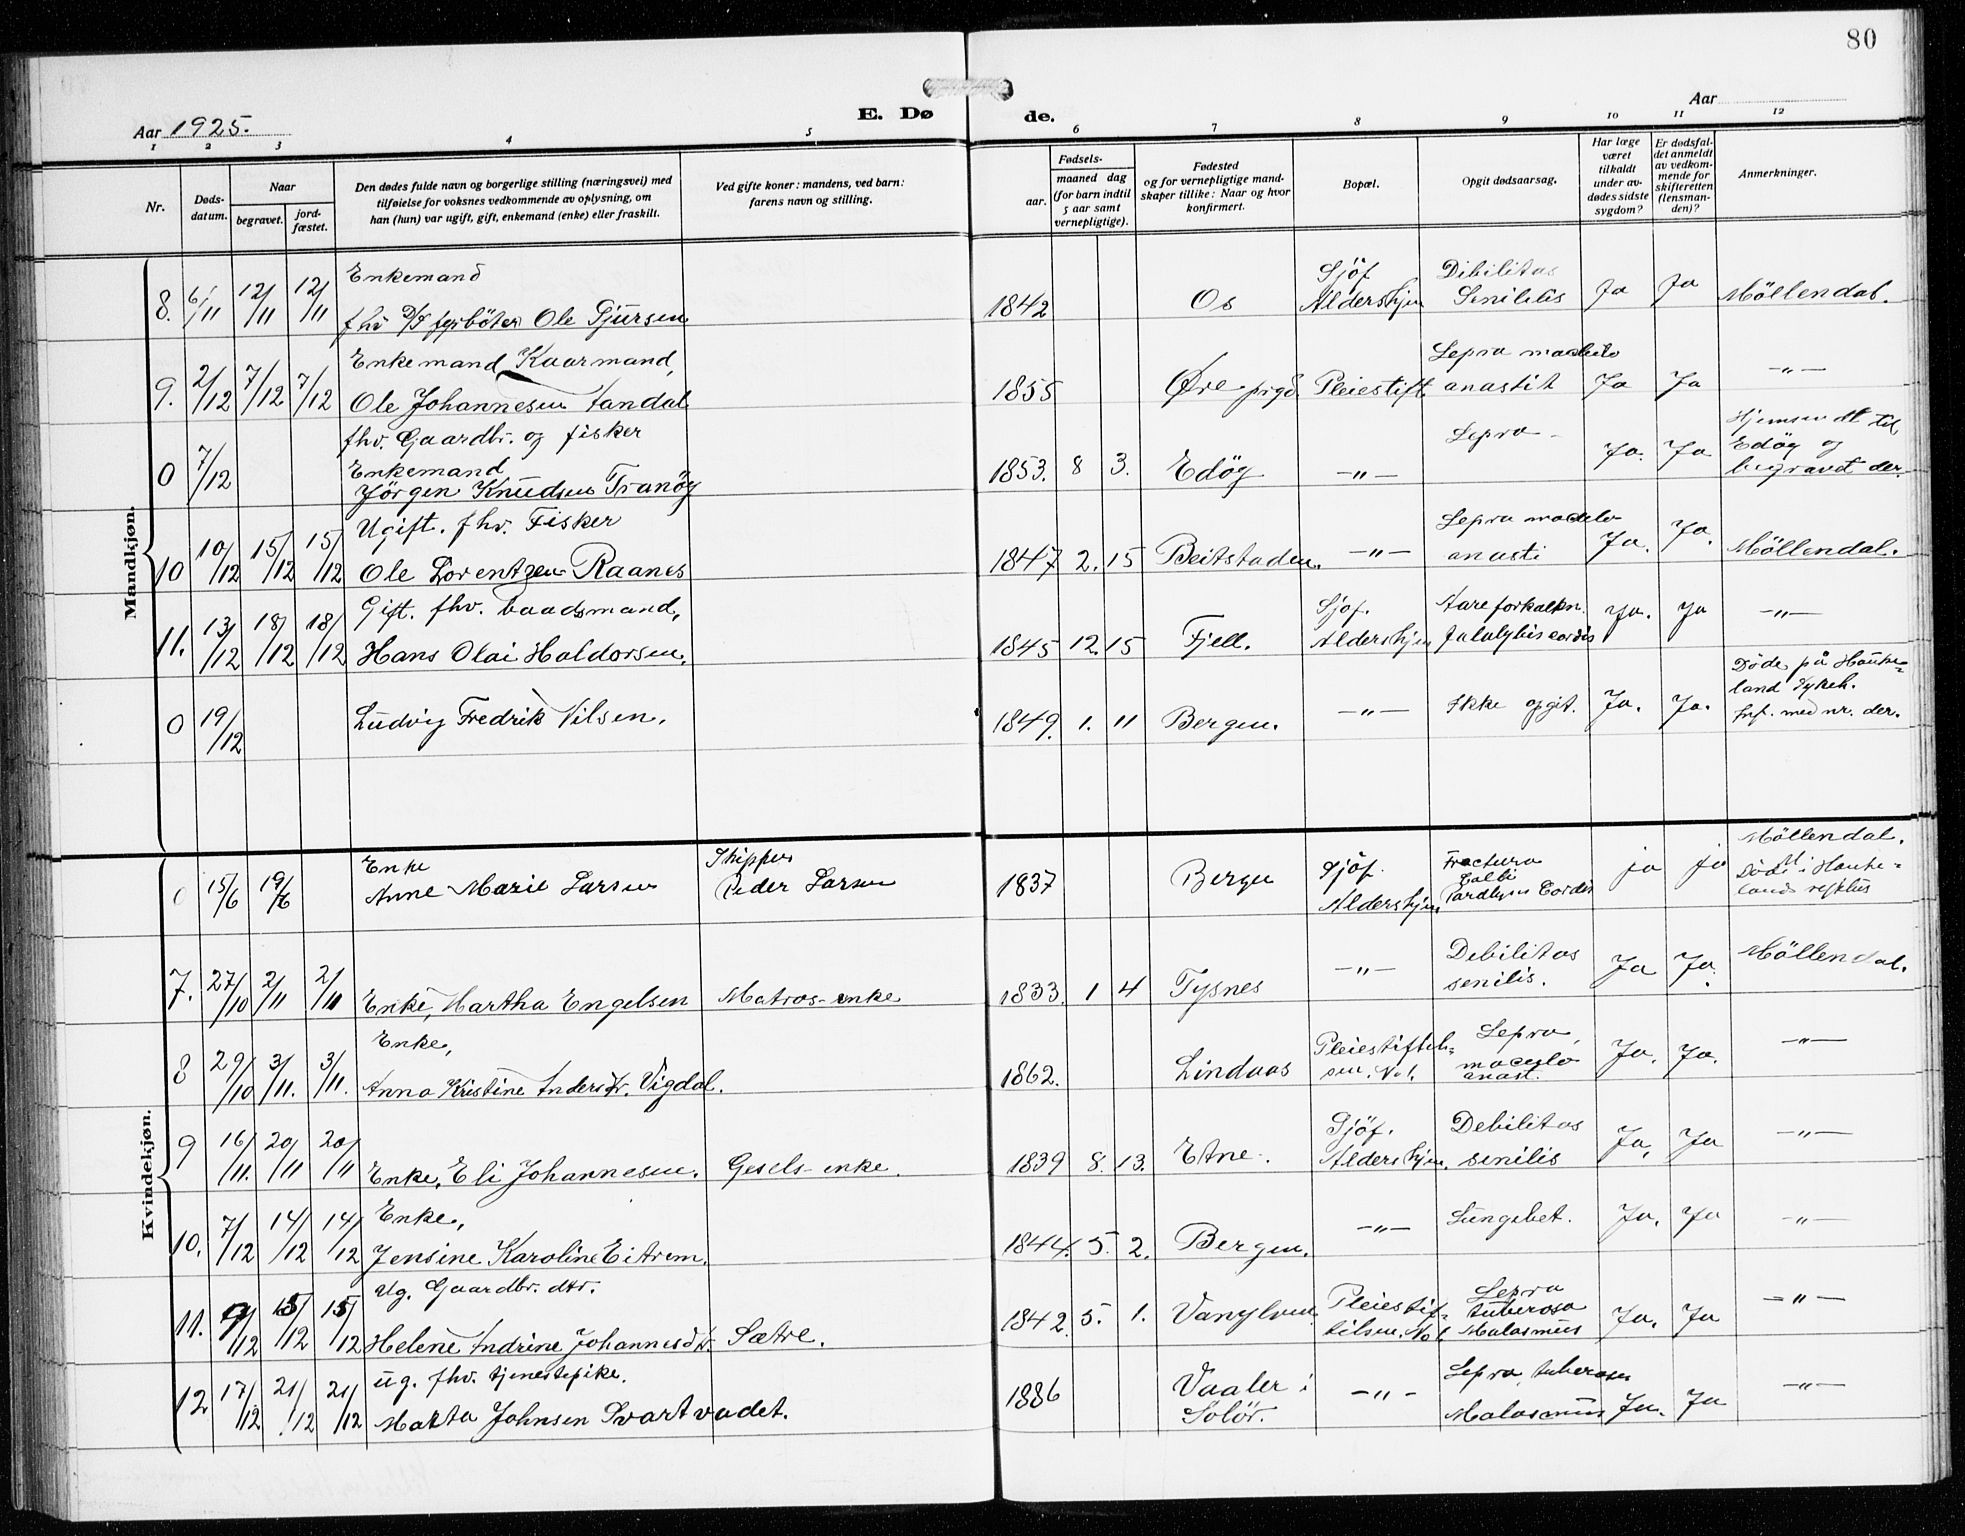 80
Aar 1925.
E. Døde.
Aar
1 2 3 4 5 6 7 8 9 10 11 12
Nr.
Døds-
datum.
Naar
begravet.
jord-
fæstet.
Den dødes fulde navn og borgerlige stilling (næringsvei) med
tilføielse for voksnes vedkommende av oplysning, om
han (hun) var ugift, gift, enkemand (enke) eller fraskilt.
Ved gifte koner: mandens, ved barn:
farens navn og stilling.
Fødsels-
aar.
maaned dag
(for barn indtil
5 aar samt
vernepligtige).
Fødested
og for vernepligtige mand-
skaper tillike: Naar og hvor
konfirmert.
Bopæl.
Opgit dødsaarsag.
Har læge
været
tilkaldt
under av-
dødes sidste
sygdom?
Er dødsfal-
det anmeldt
av vedkom-
mende for
skifteretten
(lensman-
den)?
Anmerkninger.
Mandkjøn.
Enkemand
8. 6/11 12/11 12/11 fhv D/S fyrbøter Ole Tjursen 1842 Os Sjöf. Aldershjem Dibilitas Senililis Ja Ja Möllendal.
Enkemand Kaarmand,
9. 2/12 7/12 7/12 Ole Johannesen Tandal 1855 Øre prgd. Pleiestift. Lepra maculo anastit Ja Ja -"-
fhv. Gaardbr. og fisker
Enkemand
0 7/12 Jörgen Knudsen Tranöy 1853. 8 3. Edöy -"- Lepra - Ja. Ja Hjemsendt til Edöy og begravet der.
Ugift. fhv. Fisker
10 10/12 15/12 15/12 Ole Lorentzen Raanes 1847 2. 15 Beitstaden. -"- Lepra maculo anasti Ja. Ja. Möllendal.
Gift. fhv. baadsmand,
11. 13/12 18/12 18/12 Hans Olai Haldorsen. 1845 12. 15 Fjell. Sjöf. Aldershjem Aareforkalkn. cordis Ja. Ja -"-
0 19/12 Ludvig Fredrik Nilsen. 1849. 1. 11 Bergen. -"- Ikke opgit. Ja. Ja. Döde på Hauke=land Sykeh. Inf. med nr. der.
Kvindekjøn.
Enke Skipper
0 15/6 19/6 Anne Marie Larsen Peder Larsen 1837 Bergen Sjöf. Aldershjem. Fractura Cordis ja ja Möllendal. Död i Hauke=lands
7. 27/10 2/11 2/11 Enke, Martha Engelsen Matros-enke 1833. 1 4 Tysnes -"- Debilitas senilis. Ja Ja. Möllendal.
Enke,
8 29/10 3/11. 3/11. Anna Kristine Andersdtr. Vigdal. 1862. Lindaas Pleiestiftel=sen. No 1. Lepra, maculo anast. Ja. Ja. -"-
9 16/11. 20/11 20/11 Enke, Eli Johannesen. Gesels-enke. 1839 8. 13. Etne. Sjöf. Aldershjem. Debilitas senilis Ja, Ja -"-
Enke,
10. 7/12 14/12 14/12 Jensine Karoline Eitrem. 1844. 5. 2. Bergen. -"- Lungebet. Ja. Ja -"-
Ug. Gaardbr. dtr.
11. 9/12 15/12 15/12 Helene Andrine Johannesdtr. Sætre. 1842. 5. 1. Vanylven. Pleiestif=telsen. No 1. Lepra tuberosa Malasmus Ja. Ja -"-
ug. fhv. tjenestepike.
12 17/12 21/12 21/12 Marta Johnsen Svartvadet. 1886 Vaaler i Solör. -"- Lepra, tuberosa Malasmus Ja. Ja -"-